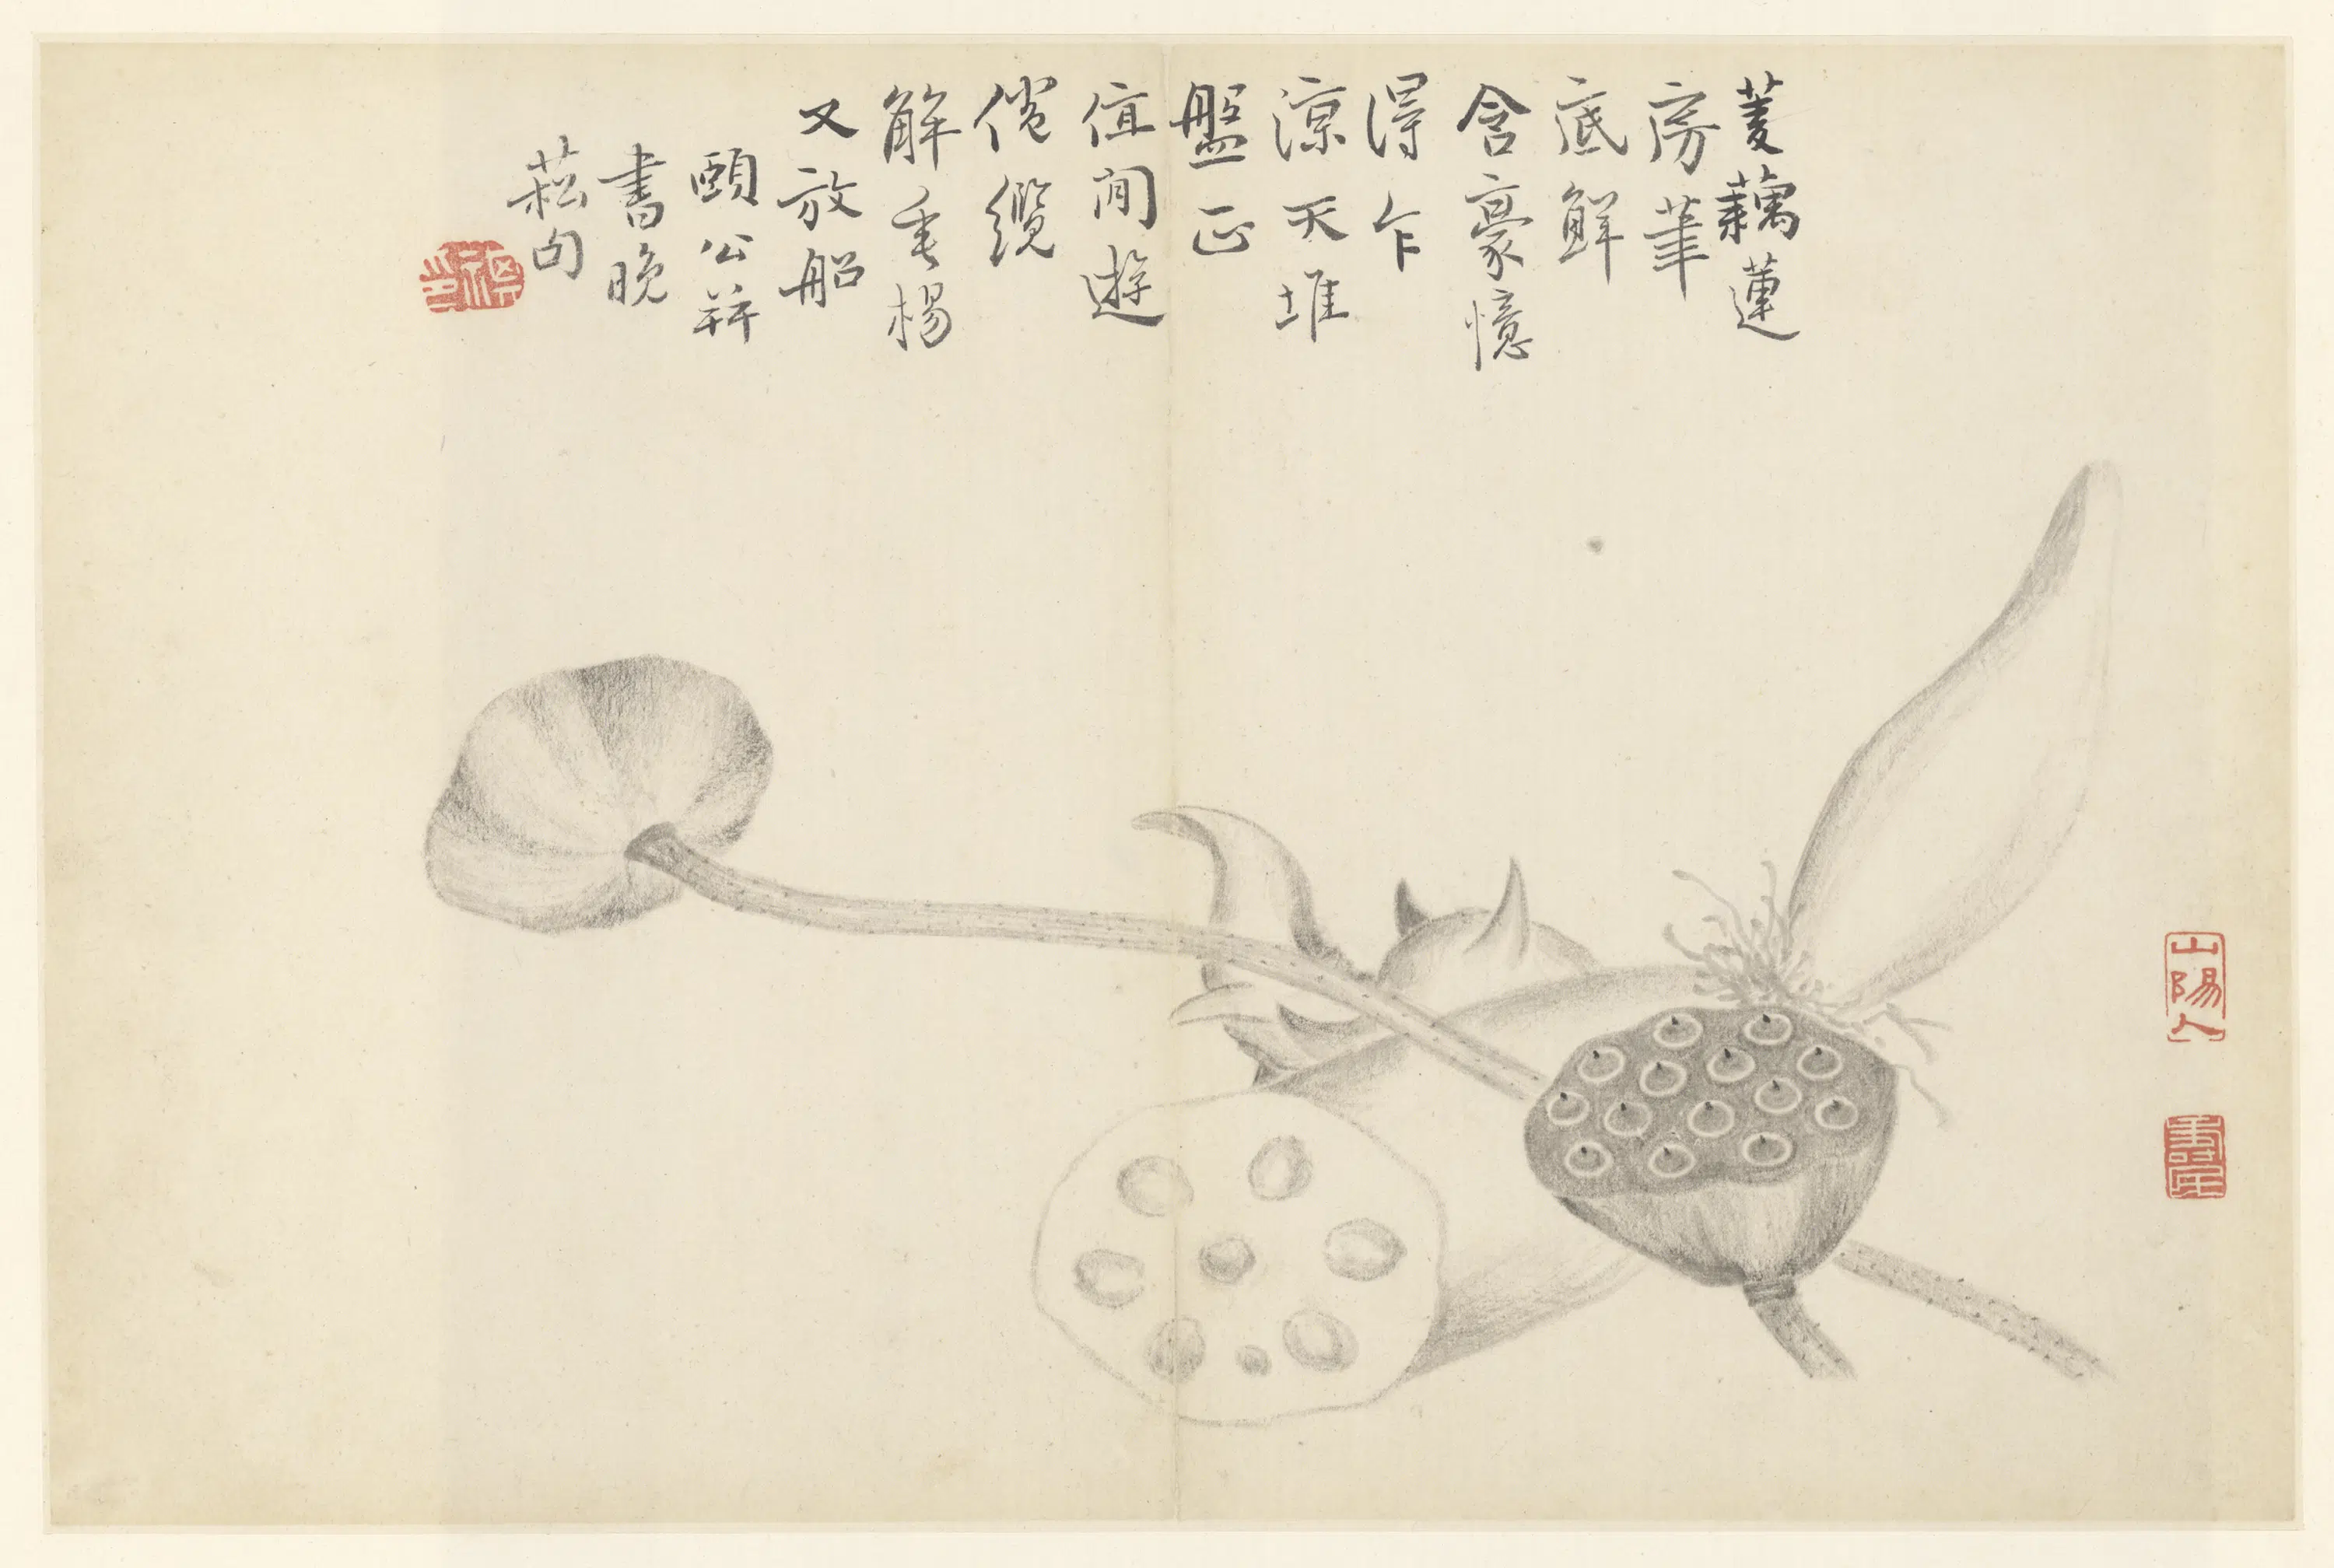 菱藕蓮
房筆
底鮮
含豪憶
得乍
涼天堆
盤正
宜閒遊
倦纜
解垂楊
又放船
頤公并
書晚
菘句
山陽人
壽平